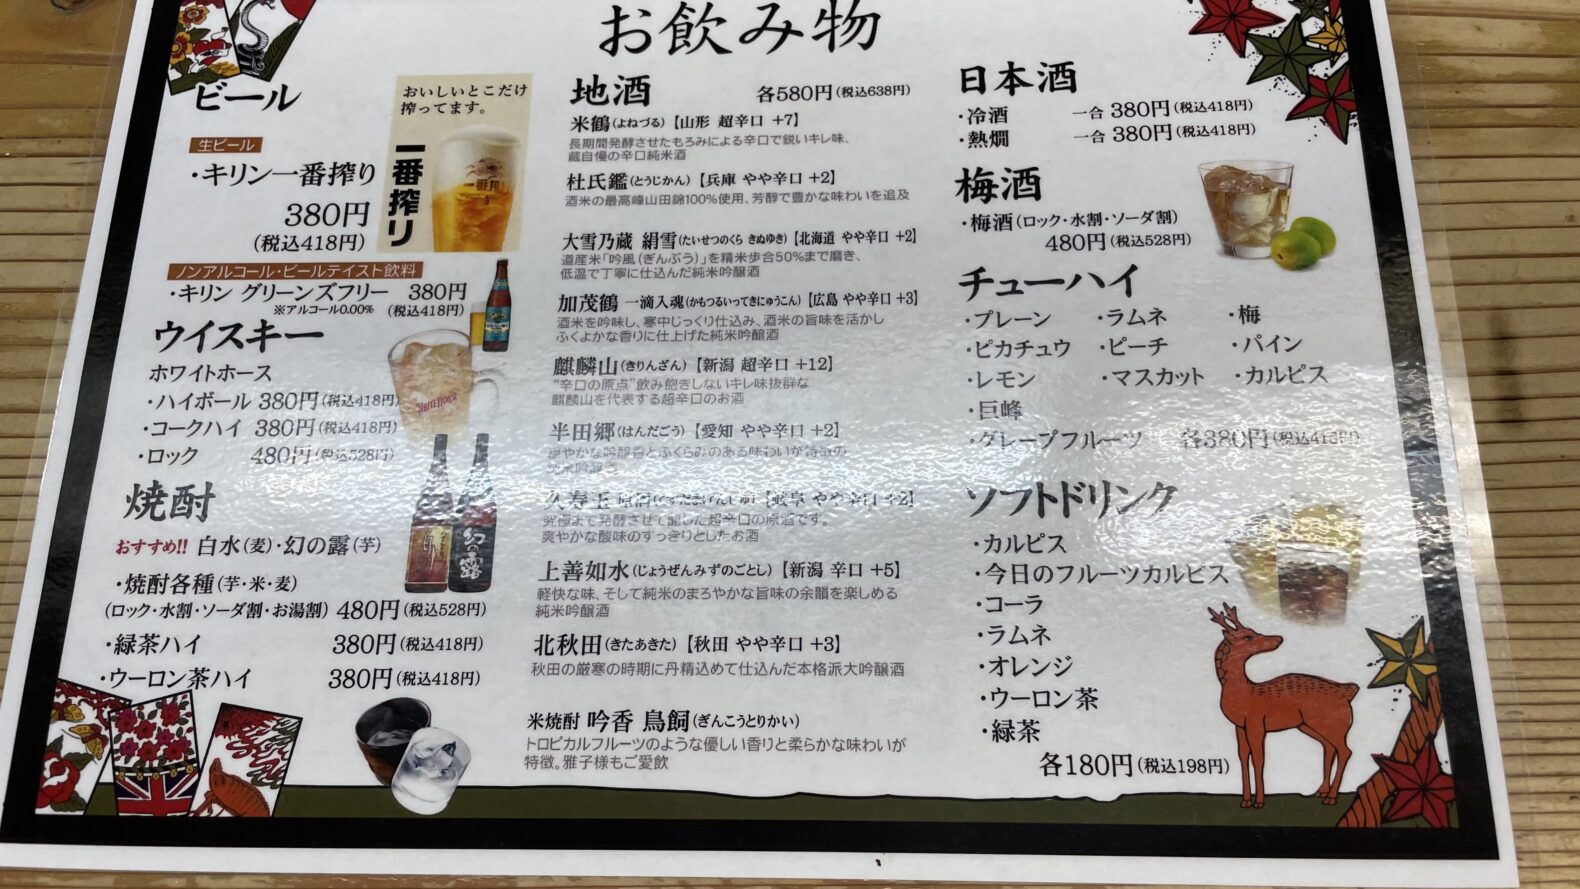 お飲み物
ビール
生ビール
・キリン一番搾り
380円
(税込418円)
おいしいとこだけ
搾ってます。
一番搾り
ノンアルコール・ビールテイスト飲料
・キリン グリーンズフリー 380円
※アルコール0.00% (税込418円)
ウイスキー
ホワイトホース
・ハイボール 380円(税込418円)
・コークハイ 380円(税込418円)
・ロック 480円(税込528円)
WHITE HORSE
焼酎
おすすめ!! 白水(麦)・幻の露(芋)
幻の露
・焼酎各種(芋・米・麦)
(ロック・水割・ソーダ割・お湯割) 480円(税込528円)
・緑茶ハイ 380円(税込418円)
・ウーロン茶ハイ 380円(税込418円)
地酒 各580円(税込638円)
米鶴(よねづる)【山形 超辛口 +7】
長期間発酵させたもろみによる辛口で鋭いキレ味、
蔵自慢の辛口純米酒
杜氏鑑(とうじかん)【兵庫 やや辛口 +2】
酒米の最高峰山田錦100%使用、芳醇で豊かな味わいを追及
大雪乃蔵 絹雪(たいせつのくら きぬゆき)【北海道 やや辛口 +2】
道産米「吟風(ぎんぷう)」を精米歩合50%まで磨き、
低温で丁寧に仕込んだ純米吟醸酒
加茂鶴 一滴入魂(かもつるいってきにゅうこん)【広島 やや辛口 +3】
酒米を吟味し、寒中じっくり仕込み、酒米の旨味を活かし
ふくよかな香りに仕上げた純米吟醸酒
麒麟山(きりんざん)【新潟 超辛口 +12】
"辛口の原点"飲み飽きしないキレ味抜群な
麒麟山を代表する超辛口のお酒
半田郷(はんだごう)【愛知 やや辛口 +2】
やかな吟醸香とふくらみのある味わいが特徴の
純米吟醸酒
久寿玉 原酒【岐阜 やや辛口 +2】
究極まで発酵させて醸した超辛口の原酒です。
爽やかな酸味のすっきりとしたお酒
上善如水(じょうぜんみずのごとし)【新潟 辛口 +5】
軽快な味、そして純米のまろやかな旨味の余韻を楽しめる
純米吟醸酒
北秋田(きたあきた)【秋田 やや辛口 +3】
秋田の厳寒の時期に丹精込めて仕込んだ本格派大吟醸酒
米焼酎 吟香 鳥飼(ぎんこうとりかい)
トロピカルフルーツのような優しい香りと柔らかな味わいが
特徴。雅子様もご愛飲
日本酒
・冷酒 一合 380円(税込418円)
・熱燗 一合 380円(税込418円)
梅酒
・梅酒(ロック・水割・ソーダ割)
480円(税込528円)
チューハイ
・プレーン ・ラムネ ・梅
・ピカチュウ ・ピーチ ・パイン
・レモン ・マスカット ・カルピス
・巨峰
・グレープフルーツ 各380円(税込418円)
ソフトドリンク
・カルピス
・今日のフルーツカルピス
・コーラ
・ラムネ
・オレンジ
・ウーロン茶
・緑茶
各180円(税込198円)